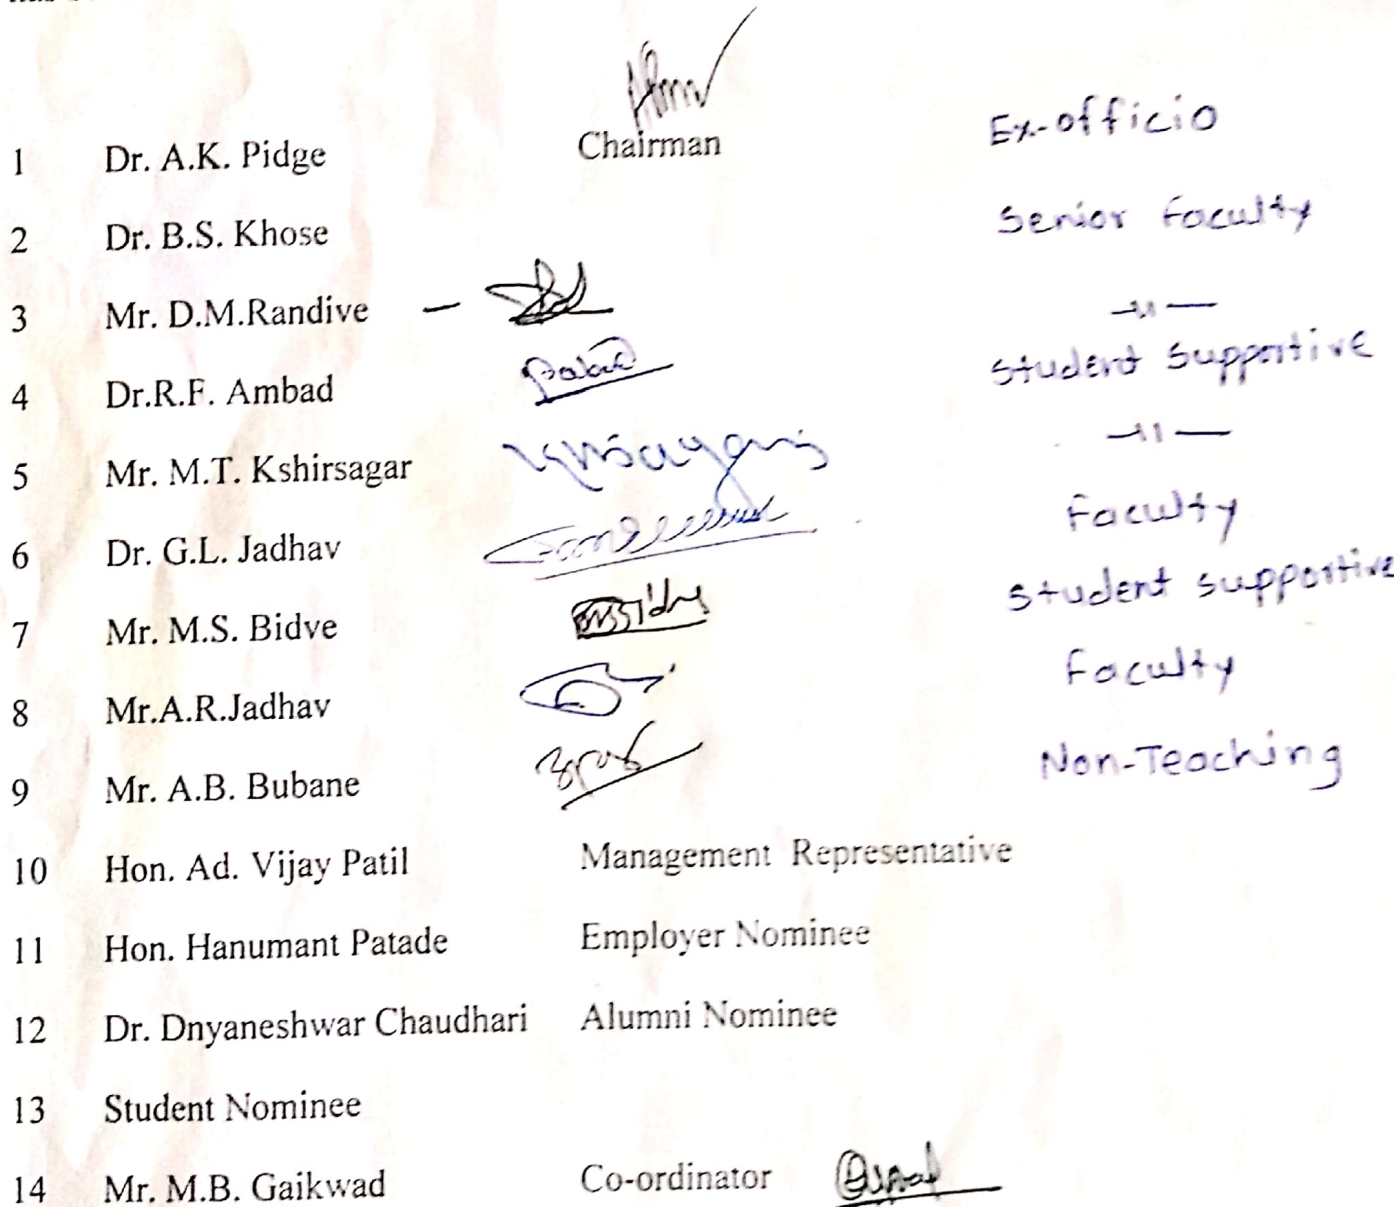 1 Dr. A.K. Pidge Chairman Ex-officio
2 Dr. B.S. Khose Senior Faculty
3 Mr. D.M.Randive – –〃–
4 Dr.R.F. Ambad Student Supportive
5 Mr. M.T. Kshirsagar –〃–
6 Dr. G.L. Jadhav Faculty
7 Mr. M.S. Bidve Student supportive
8 Mr.A.R.Jadhav Faculty
9 Mr. A.B. Bubane Non-Teaching
10 Hon. Ad. Vijay Patil Management Representative
11 Hon. Hanumant Patade Employer Nominee
12 Dr. Dnyaneshwar Chaudhari Alumni Nominee
13 Student Nominee
14 Mr. M.B. Gaikwad Co-ordinator